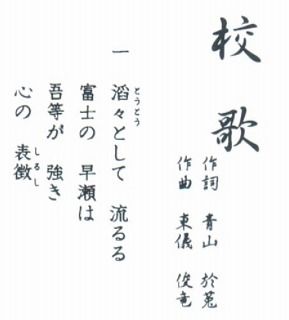 校歌
作詞 青山 於菟
作曲 東儀 俊竜
一 滔々として 流るる
富士の 早瀬は
吾等が 強き
心の 表徴